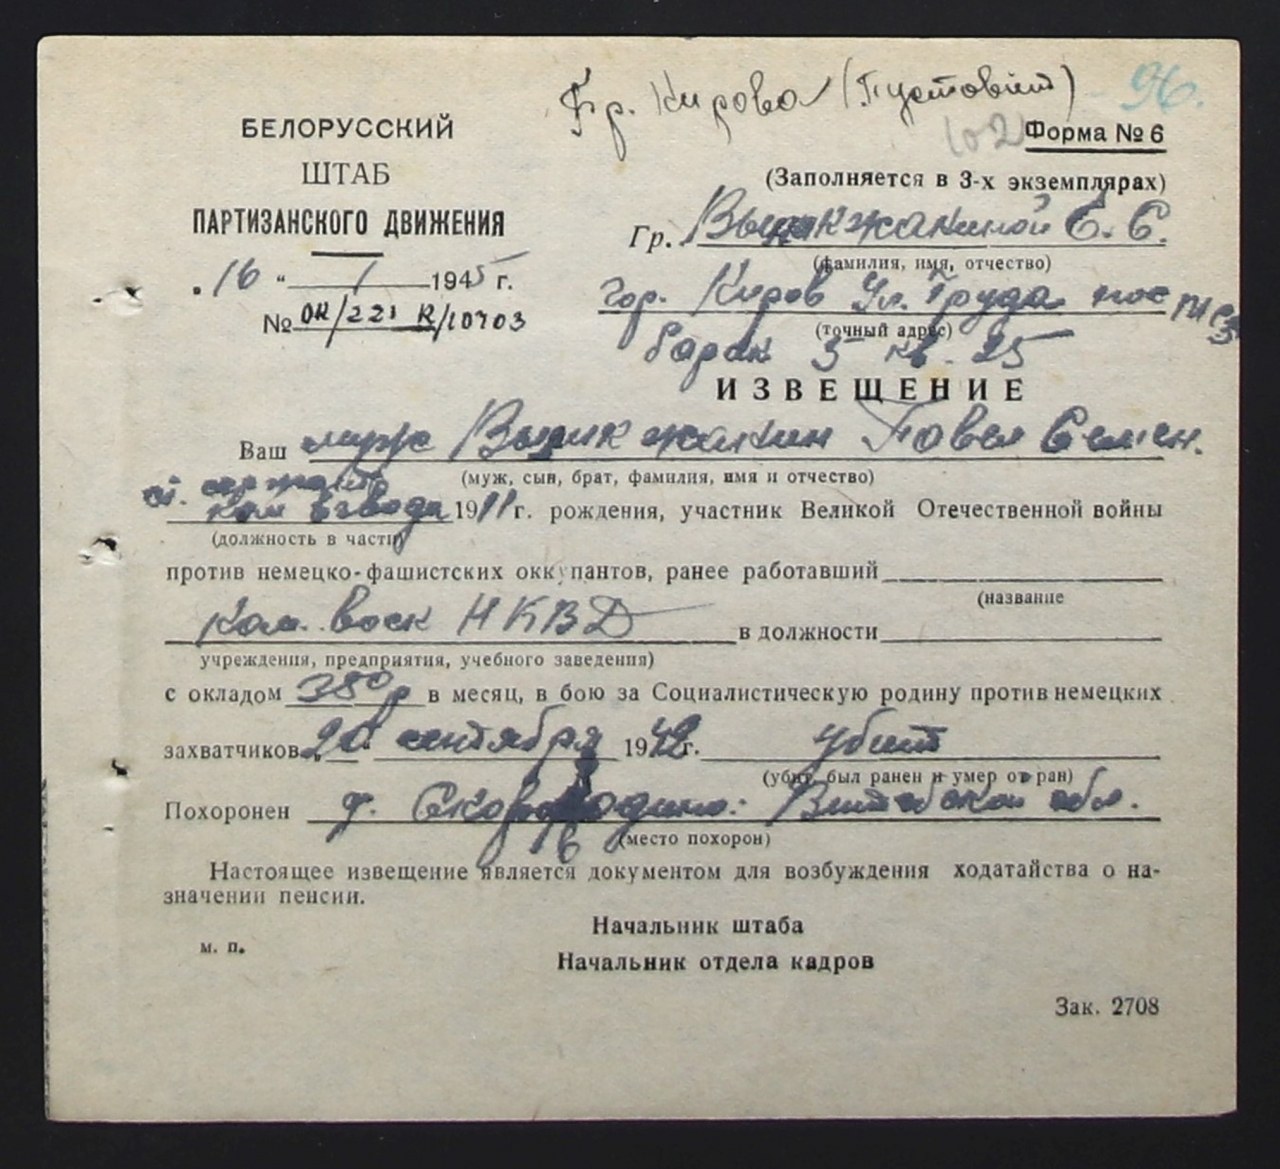 Бр. Кирова (Пустовіт) 96.
102
БЕЛОРУССКИЙ
ШТАБ
ПАРТИЗАНСКОГО ДВИЖЕНИЯ
„16“ 1 1945 г.
№ ОК/221 К/10703
Форма № 6
(Заполняется в 3-х экземплярах)
Гр. Е. С.
(фамилия, имя, отчество)
Гор. Киров Ул. Труда пос
(точный адрес)
барак 3 кв. 25
ИЗВЕЩЕНИЕ
Ваш муж Павел Семен.
(муж, сын, брат, фамилия, имя и отчество)
ст. сержант
ком взвода 1911 г. рождения, участник Великой Отечественной войны
(должность в части)
против немецко-фашистских оккупантов, ранее работавший
(название
Ком. воск НКВД в должности
учреждения, предприятия, учебного заведения)
с окладом 380 р в месяц, в бою за Социалистическую родину против немецких
захватчиков сентября 1942 г. убит
(убит, был ранен и умер от ран)
Похоронен д. Витебской обл.
(место похорон)
Настоящее извещение является документом для возбуждения ходатайства о на-
значении пенсии.
Начальник штаба
м. п.
Начальник отдела кадров
Зак. 2708